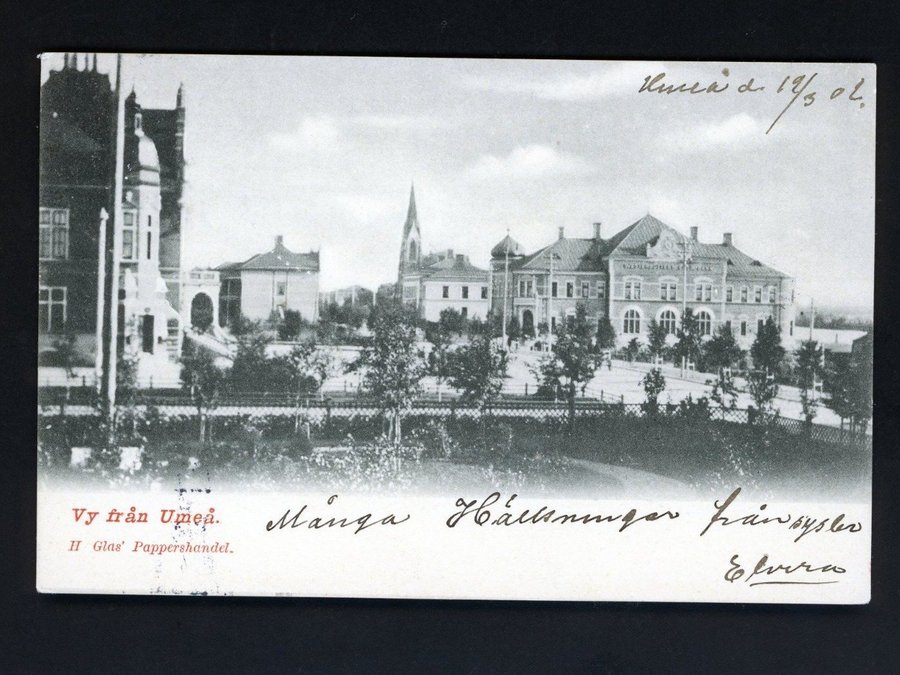 Umeå d. 19/3 02.
Vy från Umeå.
Många Hällsningar från syster
H Glas' Pappershandel.
Elvira